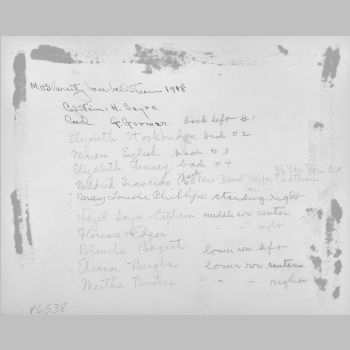 MHS Varsity base-ball team 1918
Captain: H. Sayre
Coach G. Gorman back left #1
Elizabeth Stockbridge back #2
Miriam English back #3
Elizabeth Tenney back #4
Mildred Francisco next Mrs. David Chatham
Mary Louise Phillips standing right
Hazel Sayre - Captain middle row center
Florence Edgar " right
Blanche Bogert lower row left
Eleanor Burges lower row center
Martha " - right
P6538